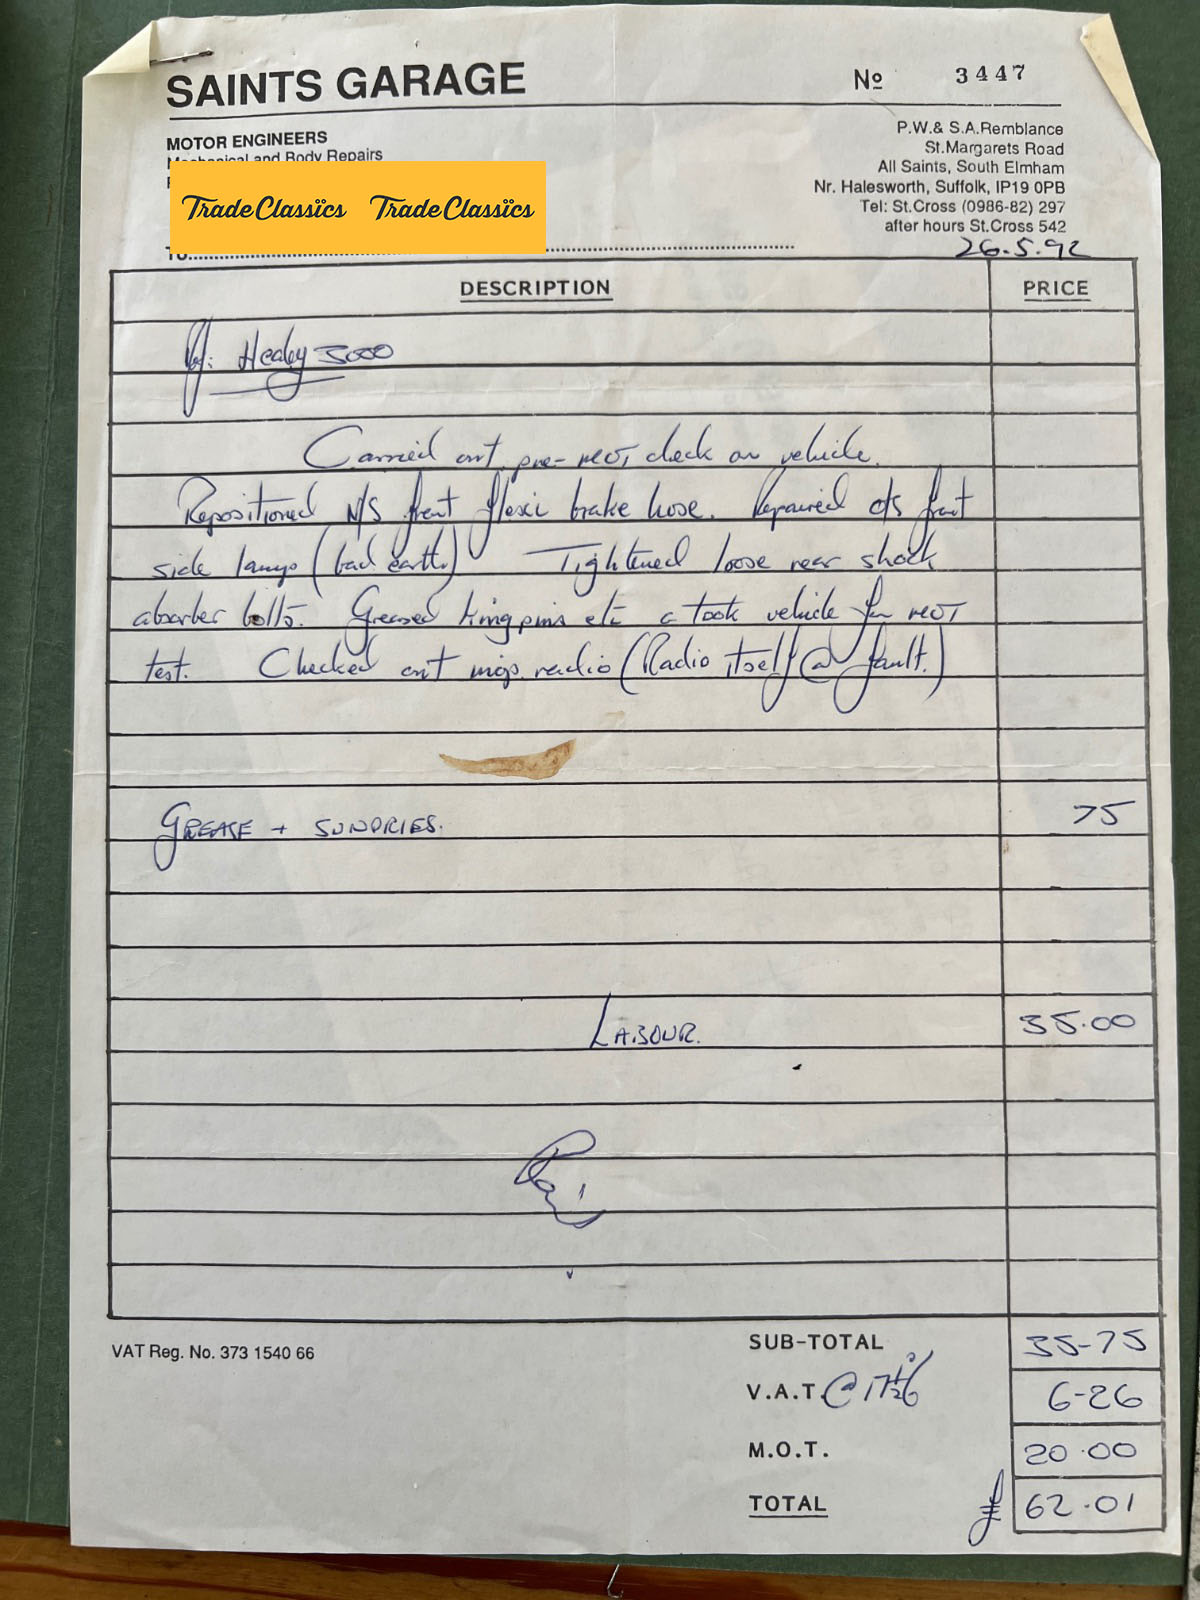 SAINTS GARAGE
Nº 3447
MOTOR ENGINEERS
Mechanical and Body Repairs
P.W.& S.A.Remblance
St.Margarets Road
All Saints, South Elmham
Nr. Halesworth, Suffolk, IP19 0PB
Tel: St.Cross (0986-82) 297
after hours St.Cross 542
Trade Classics Trade Classics
TO
26.5.92
DESCRIPTION PRICE
Healey 3000
Carried out pre-MOT check on vehicle.
Repositioned N/S front flexi brake hose. Repaired o/s front
side lamp (bad earth.) Tightened loose rear shock
absorber bolts. Greased kingpins etc & took vehicle for MOT
test. Checked out radio (Radio itself @ fault.)
GREASE + SUNDRIES. 75
LABOUR. 35.00
VAT Reg. No. 373 1540 66
SUB-TOTAL 35-75
V.A.T. @ 17½% 6-26
M.O.T. 20.00
TOTAL £ 62.01